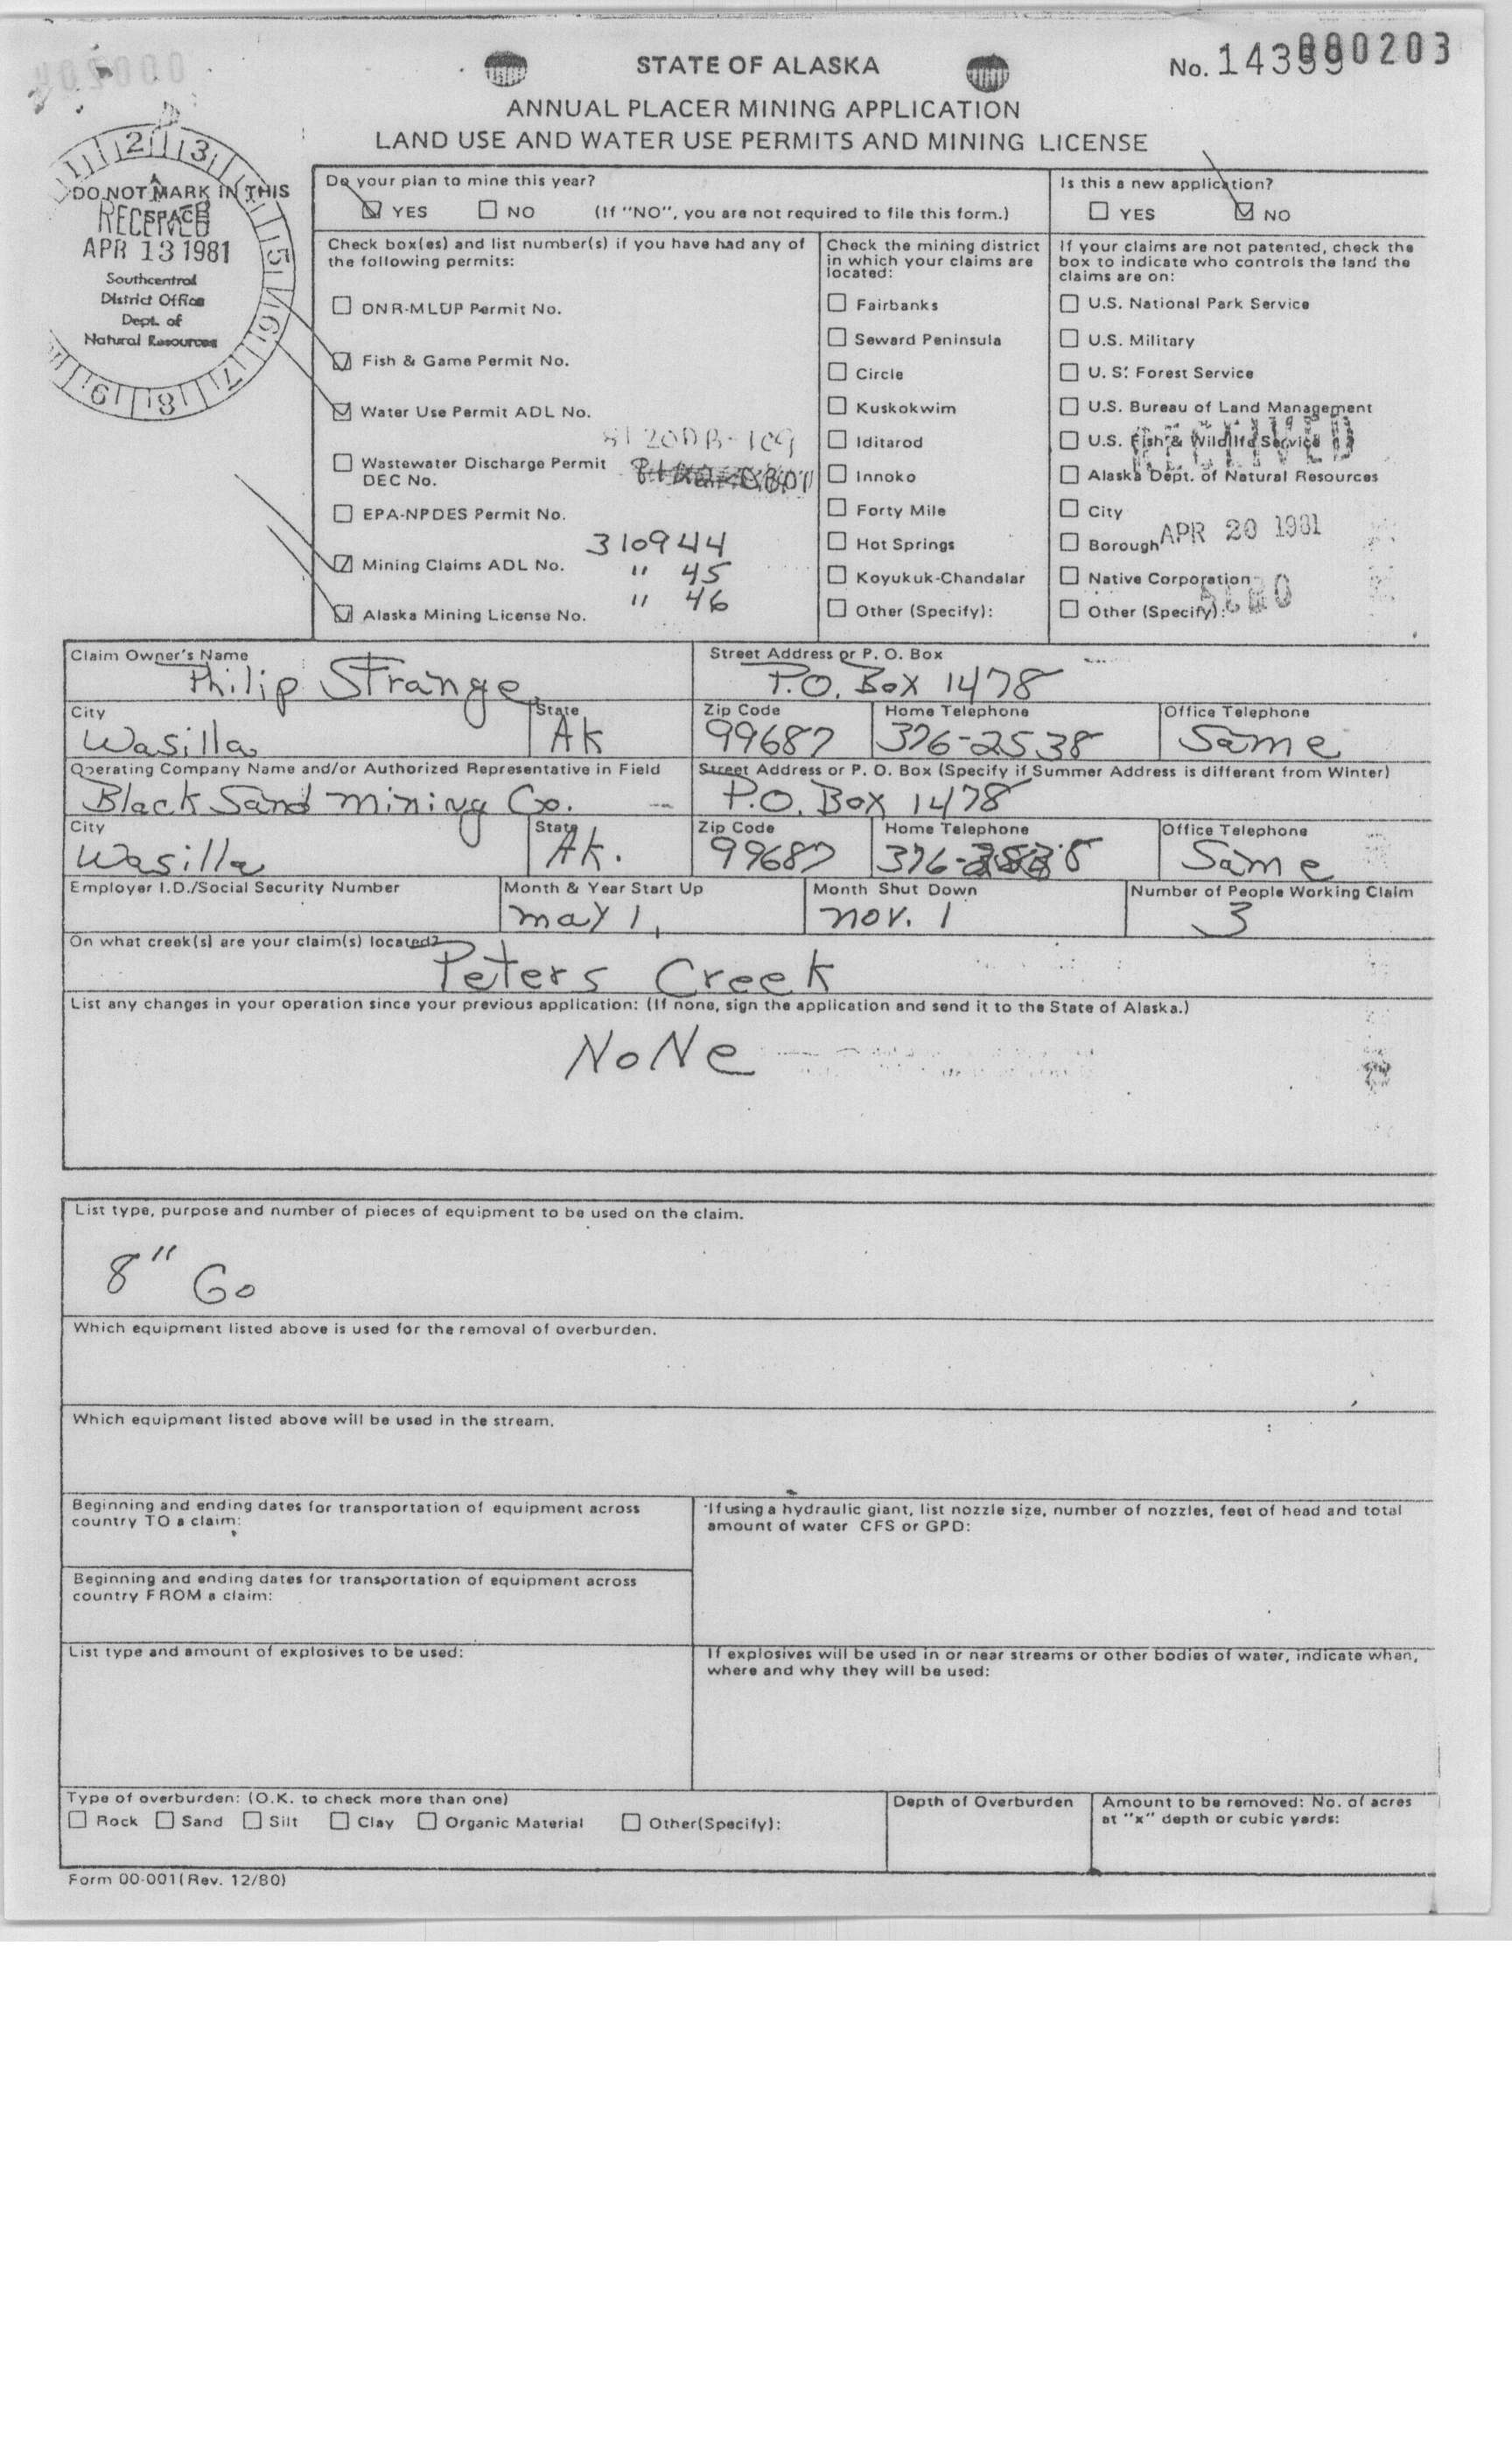 STATE OF ALASKA
No. 14399 000203
ANNUAL PLACER MINING APPLICATION
LAND USE AND WATER USE PERMITS AND MINING LICENSE
DO NOT MARK IN THIS
SPACE
RECEIVED
APR 13 1981
Southcentral
District Office
Dept. of
Natural Resources
2 3 5 6 7 8 9
Do your plan to mine this year?
YES NO (If "NO", you are not required to file this form.)
Is this a new application?
YES NO
Check box(es) and list number(s) if you have had any of
the following permits:
DNR-MLUP Permit No.
Fish & Game Permit No.
Water Use Permit ADL No.
Wastewater Discharge Permit
DEC No.
8120DB-109
EPA-NPDES Permit No.
Mining Claims ADL No. 310944
" 45
" 46
Alaska Mining License No.
Check the mining district
in which your claims are
located:
Fairbanks
Seward Peninsula
Circle
Kuskokwim
Iditarod
Innoko
Forty Mile
Hot Springs
Koyukuk-Chandalar
Other (Specify):
If your claims are not patented, check the
box to indicate who controls the land the
claims are on:
U.S. National Park Service
U.S. Military
U. S. Forest Service
U.S. Bureau of Land Management
U.S. Fish & Wildlife Service
Alaska Dept. of Natural Resources
City
Borough
Native Corporation
Other (Specify):
RECEIVED
APR 20 1981
Claim Owner's Name
Philip Strange
Street Address or P. O. Box
P.O. Box 1478
City
Wasilla
State
AK
Zip Code
99687
Home Telephone
376-2538
Office Telephone
Same
Operating Company Name and/or Authorized Representative in Field
Black Sand mining Co.
Street Address or P. O. Box (Specify if Summer Address is different from Winter)
P.O. Box 1478
City
Wasilla
State
Ak.
Zip Code
99687
Home Telephone
376-2538
Office Telephone
Same
Employer I.D./Social Security Number
Month & Year Start Up
may 1,
Month Shut Down
nov. 1
Number of People Working Claim
3
On what creek(s) are your claim(s) located?
Peters Creek
List any changes in your operation since your previous application: (If none, sign the application and send it to the State of Alaska.)
NoNe
List type, purpose and number of pieces of equipment to be used on the claim.
8" Go
Which equipment listed above is used for the removal of overburden.
Which equipment listed above will be used in the stream.
Beginning and ending dates for transportation of equipment across
country TO a claim:
If using a hydraulic giant, list nozzle size, number of nozzles, feet of head and total
amount of water CFS or GPD:
Beginning and ending dates for transportation of equipment across
country FROM a claim:
List type and amount of explosives to be used:
If explosives will be used in or near streams or other bodies of water, indicate when,
where and why they will be used:
Type of overburden: (O.K. to check more than one)
Rock Sand Silt Clay Organic Material Other(Specify):
Depth of Overburden
Amount to be removed: No. of acres
at "x" depth or cubic yards:
Form 00-001(Rev. 12/80)